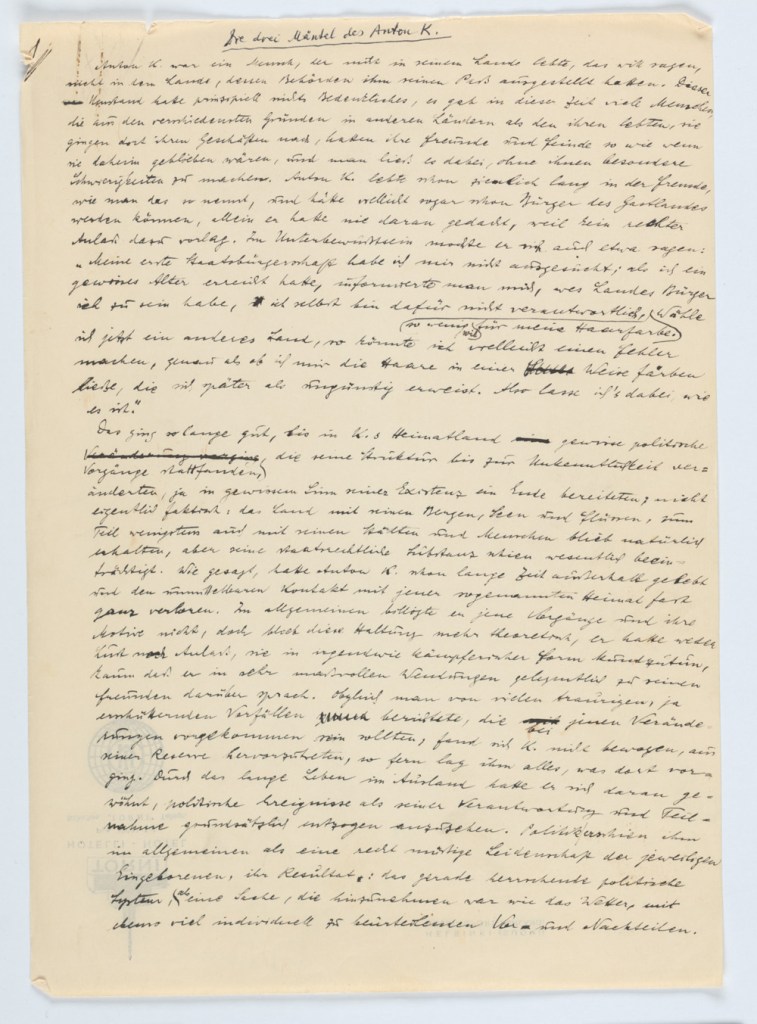 1
Die drei Mäntel des Anton K.
Anton K. war ein Mensch, der nicht in seinem Lande lebte, das will sagen,
nicht in dem Lande, dessen Behörden ihm seinen Paß ausgestellt hatten. Dieser
Umstand hatte prinzipiell nichts Bedenkliches, es gab in dieser Zeit viele Menschen,
die aus den verschiedensten Gründen in anderen Ländern als den ihren lebten, sie
gingen dort ihren Geschäften nach, hatten ihre Freunde und Feinde so wie wenn
sie daheim geblieben wären, und man ließ es dabei, ohne ihnen besondere
Schwierigkeiten zu machen. Anton K. lebte schon ziemlich lang in der Fremde,
wie man das so nennt, und hätte vielleicht sogar schon Bürger des Gastlandes
werden können, allein er hatte nie daran gedacht, weil kein rechter
Anlaß dazu vorlag. Im Unterbewußtsein mochte er sich auch etwa sagen:
„Meine erste Staatsbürgerschaft habe ich mir nicht ausgesucht; als ich ein
gewisses Alter erreicht hatte, informierte man mich, wes Landes Bürger
ich zu sein habe, ich selbst bin dafür nicht verantwortlich, Wähle
(so wenig wie für meine Haarfarbe.
ich jetzt ein anderes Land, so könnte ich vielleicht einen Fehler
machen, genau als ob ich mir die Haare in einer Weise färben
ließe, die sich später als ungünstig erweist. Also lasse ich's dabei, wie
es ist."
Das ging solange gut, bis in K.s Heimatland gewisse politische
Veränderung
Vorgänge stattfanden, die seine Struktur bis zur Unkenntlichkeit ver=
änderten, ja in gewissem Sinn seiner Existenz ein Ende bereiteten; nicht
eigentlich faktisch: das Land mit seinen Bergen, Seen und Flüssen, zum
Teil wenigstens auch mit seinen Städten und Menschen blieb natürlich
erhalten, aber seine staatsrechtliche Substanz schien wesentlich beein-
trächtigt. Wie gesagt, hatte Anton K. schon lange Zeit außerhalb gelebt
und den unmittelbaren Kontakt mit jener sogenannten Heimat fast
ganz verloren. Im allgemeinen billigte er jene Vorgänge und ihre
Motive nicht, doch blieb diese Haltung mehr theoretisch, er hatte weder
Lust noch Anlaß, sie in irgendwie kämpferischer Form kundzutun,
kaum daß er in sehr maßvollen Wendungen gelegentlich zu seinen
Freunden darüber sprach. Obgleich man von vielen traurigen, ja
erschütternden Vorfällen berichtete, die bei jenen Verände-
rungen vorgekommen sein sollten, fand sich K. nicht bewogen, aus
seiner Reserve hervorzutreten, so fern lag ihm alles, was dort vor
ging. Durch das lange Leben im Ausland hatte er sich daran ge-
wöhnt, politische Ereignisse als seiner Verantwortung und Teil-
nahme grundsätzlich entzogen anzusehen. Politik erschien ihm
im allgemeinen als eine recht müßige Leidenschaft der jeweiligen
Eingeborenen, ihr Resultat: das gerade herrschende politische
System, als eine Sache, die hinzunehmen war wie das Wetter, mit
ebenso viel individuell zu beurteilenden Vor- und Nachteilen.